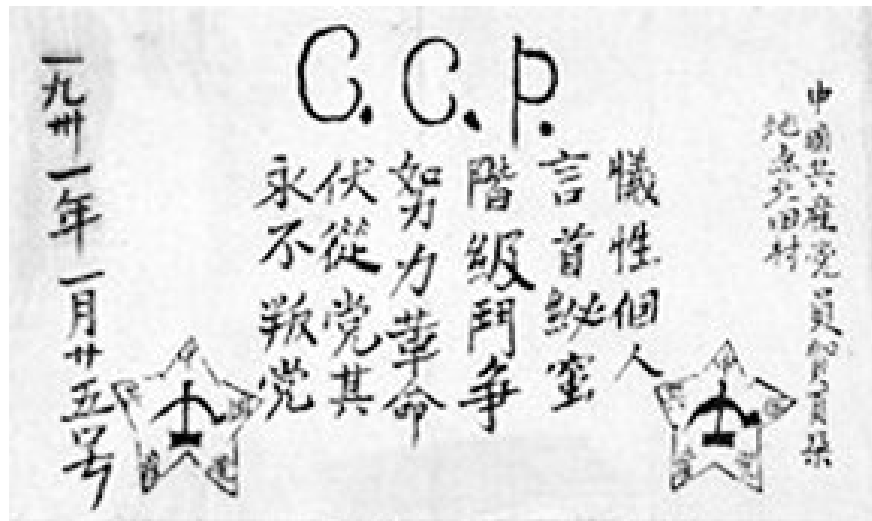 C.C.P.
中國共產党員
地点北田村
犠性個人
言首秘密
階級鬥争
努力革命
伏從党其
永不叛党
一九卅一年一月廿五号